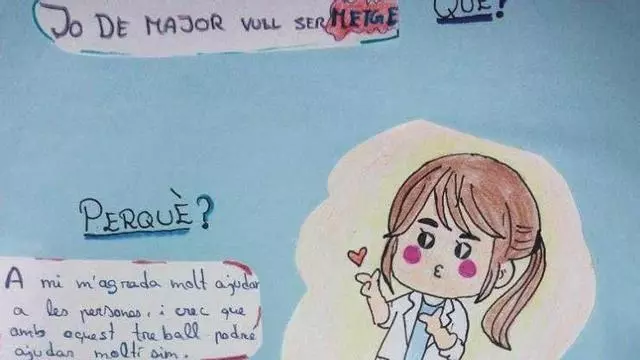 JO DE MAJOR VULL SER METGE
QUÈ?
PERQUÈ?
A mi m'agrada molt ajudar
a les persones, i crec que
amb aquest treball podré
ajudar moltíssim.